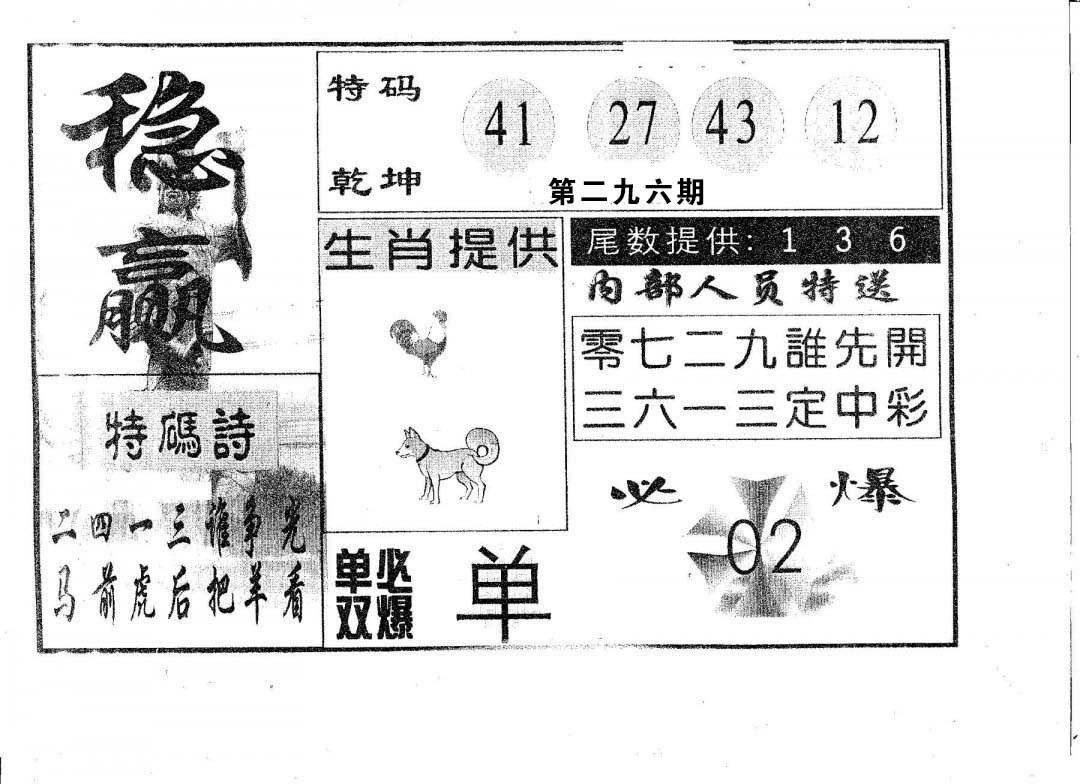 稳
赢
特码
41 27 43 12
乾坤
第二九六期
生肖提供
尾数提供: 1 3 6
内部人员特送
零七二九誰先開
三六一三定中彩
特碼詩
二四一三谁争光
马前虎后把羊看
必爆
02
单必
双爆
单